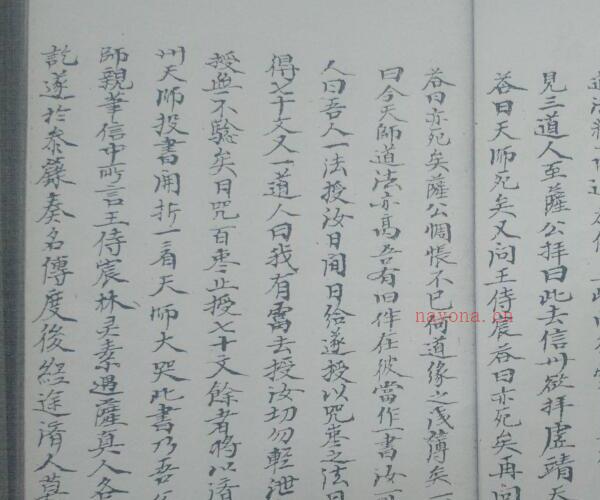 見三道人至薩公拜曰此去信州欲拜虛靖天
荅曰天師死矣又问王侍宸荅曰亦死矣再问
荅曰亦死矣薩公惆悵不已何道緣之浅薄矣一
曰今天師道法亦高吾有旧伴在彼當作一書汝可
人曰吾人一法授汝日间日给遂授以咒枣之法日
得七十文又一道人曰我有雷去授汝切勿輕泄
授無不驗矣日咒百枣止授七十文餘者將以濟
州天師投書開折一看天師大哭此書乃吾父
師親筆信中所言王侍宸林灵素遇薩真人各
訖遂於泰籙奏名傳度後经途濟人莫
nayona.cn